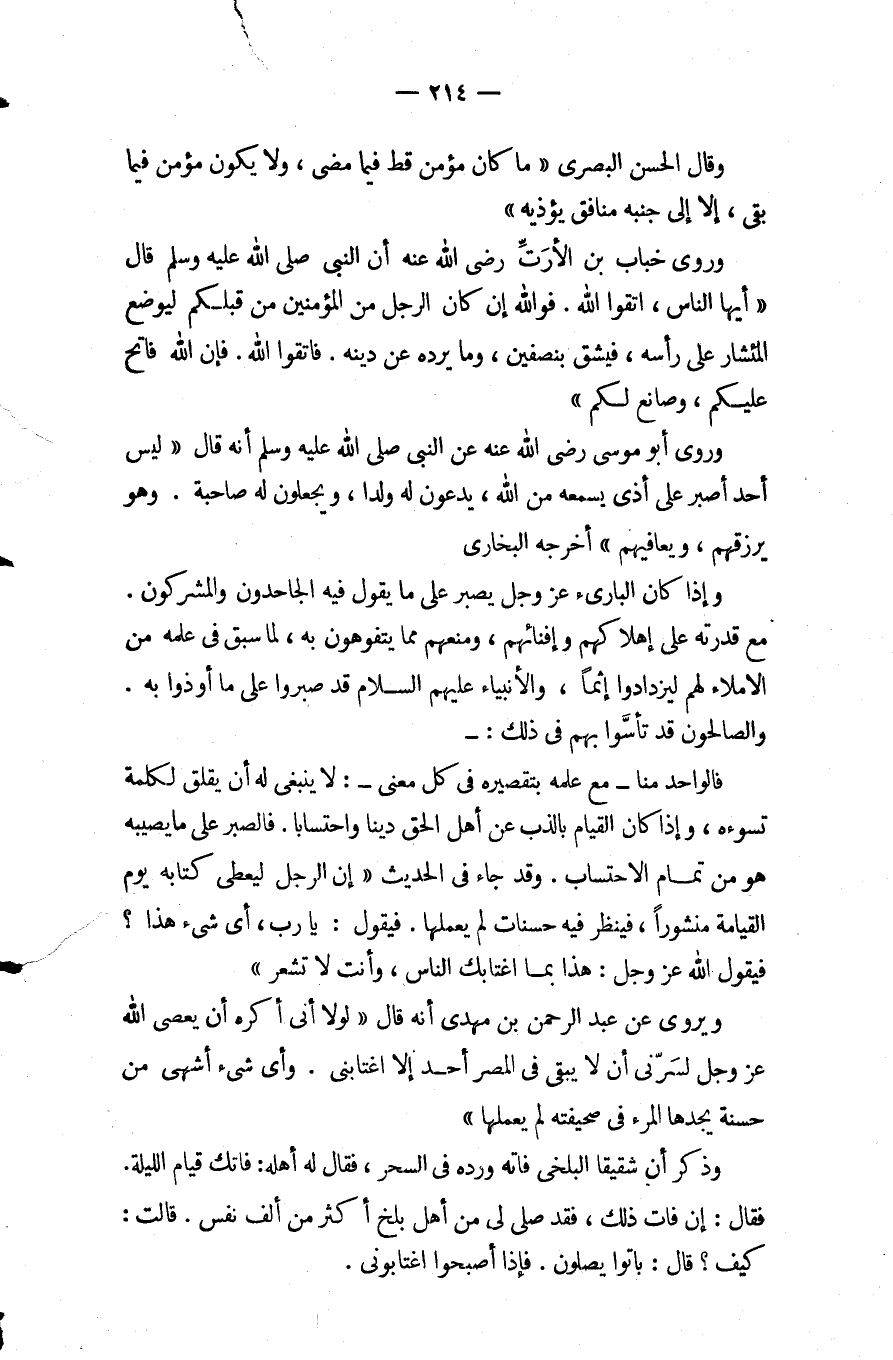 — ٢١٤ —
وقال الحسن البصرى « ما كان مؤمن قط فيما مضى ، ولا يكون مؤمن فيما
بقى ، إلا إلى جنبه منافق يؤذيه »
وروى خباب بن الأرَتِّ رضى الله عنه أن النبى صلى الله عليه وسلم قال
« أيها الناس ، اتقوا الله . فوالله إن كان الرجل من المؤمنين من قبلـكم ليوضع
المنشار على رأسه ، فيشق بنصفين ، وما يرده عن دينه . فاتقوا الله . فإن الله فاتح
عليـكم ، وصانع لـكم »
وروى أبو موسى رضى الله عنه عن النبى صلى الله عليه وسلم أنه قال « ليس
أحد أصبر على أذى يسمعه من الله ، يدعون له ولدا ، ويجعلون له صاحبة . وهو
يرزقهم ، ويعافيهم » أخرجه البخارى
وإذا كان البارىء عز وجل يصبر على ما يقول فيه الجاحدون والمشركون .
مع قدرته على إهلاكهم وإفنائهم ، ومنعهم مما يتفوهون به ، لما سبق فى علمه من
الاملاء لهم ليزدادوا إثماً ، والأنبياء عليهم الســلام قد صبروا على ما أوذوا به .
والصالحون قد تأسَّوا بهم فى ذلك : ــ
فالواحد منا ــ مع علمه بتقصيره فى كل معنى ــ : لا ينبغى له أن يقلق لـكلمة
تسوءه ، وإذا كان القيام بالذب عن أهل الحق دينا واحتسابا . فالصبر على مايصيبه
هو من تمــام الاحتساب . وقد جاء فى الحديث « إن الرجل ليعطى كتابه يوم
القيامة منشوراً ، فينظر فيه حسنات لم يعملها . فيقول : يا رب ، أى شىء هذا ؟
فيقول الله عز وجل : هذا بمــا اغتابك الناس ، وأنت لا تشعر »
ويروى عن عبد الرحمن بن مهدى أنه قال « لولا أنى أكره أن يعصى الله
عز وجل لسَرّنى أن لا يبقى فى المصر أحــد إلا اغتابنى . وأى شىء أشهى من
حسنة يجدها المرء فى صحيفته لم يعملها »
وذكر أن شقيقا البلخى فاته ورده فى السحر ، فقال له أهله : فاتك قيام الليلة.
فقال : إن فات ذلك ، فقد صلى لى من أهل بلخ أكثر من ألف نفس . قالت :
كيف ؟ قال : باتوا يصلون . فإذا أصبحوا اغتابونى .